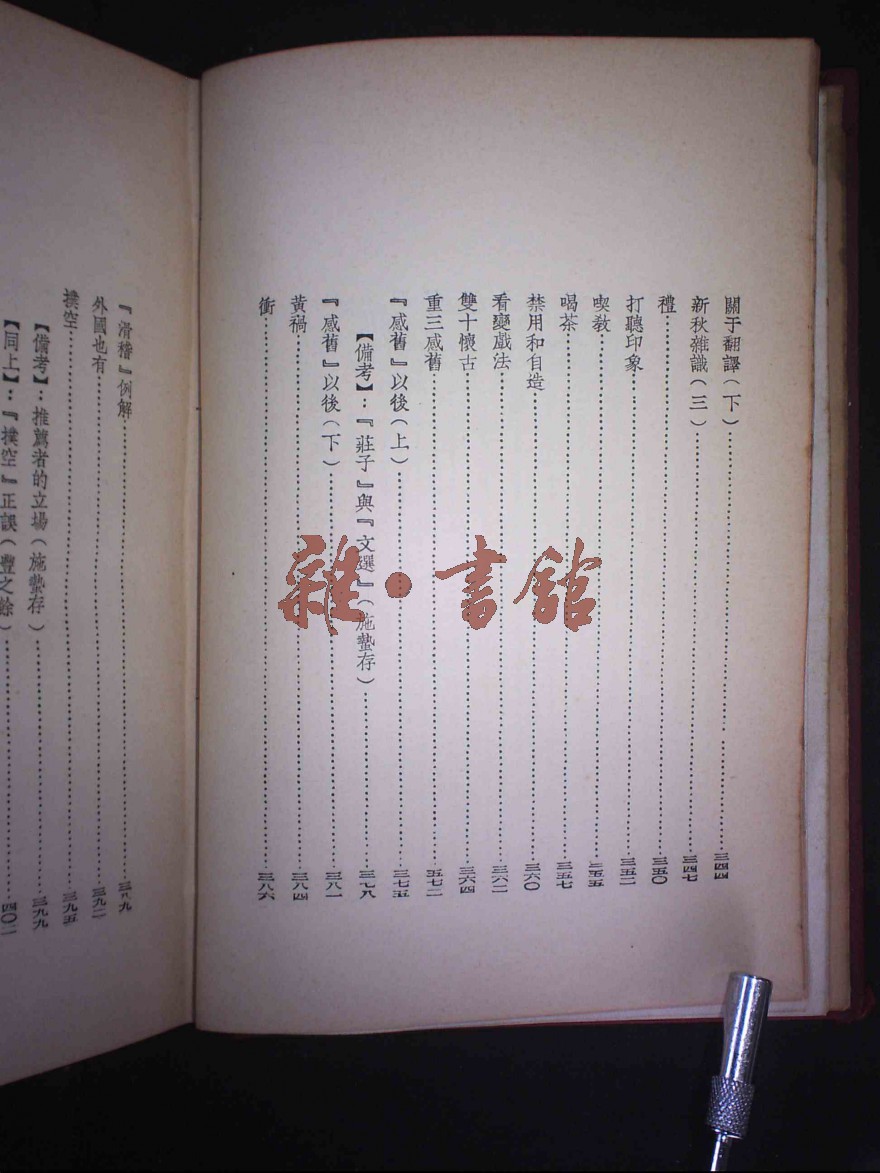 關于翻譯（下）……三四四
新秋雜識（三）……三四七
禮……三五〇
打聽印象……三五二
喫教……三五五
喝茶……三五七
禁用和自造……三六〇
看變戲法……三六二
雙十懷古……三六四
重三感舊……五七二
『感舊』以後（上）……三七五
【備考】：『莊子』與『文選』（施蟄存）……三七八
『感舊』以後（下）……三八一
黃禍……三八四
衝……三八六
『滑稽』例解……三八九
外國也有……三九二
撲空……三九五
【備考】：推薦者的立場（施蟄存）……三九九
【同上】：『撲空』正誤（豐之餘）……四〇二
雜·書館